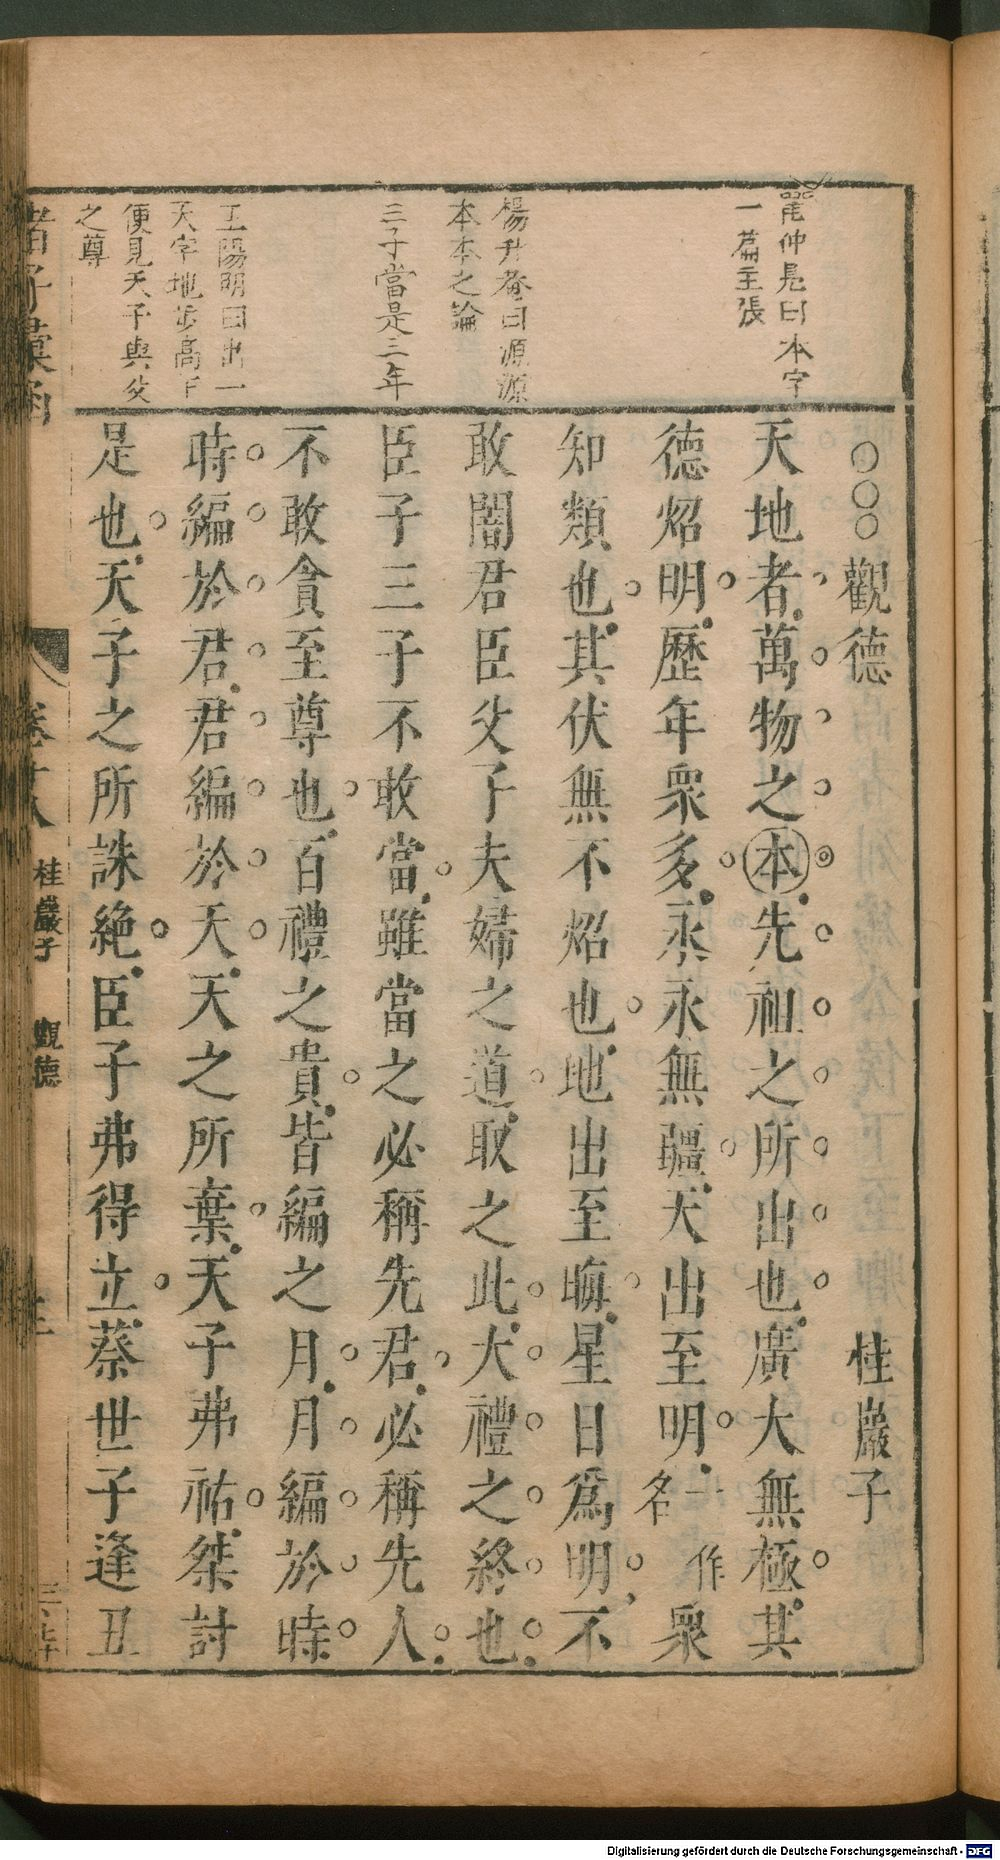 仲長曰本字
一篇主張
楊升菴曰源源
本本之論
三子當是三年
王陽明曰出一
天字地步高下
便見天子與父
之尊
觀德 桂巖子
天地者萬物之本先祖之所出也廣大無極其
德炤明歷年衆多永永無疆天出至明一作名衆
知類也其伏無不炤也地出至晦星日爲明不
敢闇君臣父子夫婦之道取之此大禮之終也
臣子三子不敢當雖當之必稱先君必稱先人
不敢貪至尊也百禮之貴皆編之月月編於時
時編於君君編於天天之所棄天子弗祐桀討
是也天子之所誅絶臣子弗得立蔡世子逢丑
諸子彙函 卷十八 桂巖子 觀德
Digitalisierung gefördert durch die Deutsche Forschungsgemeinschaft - DFG